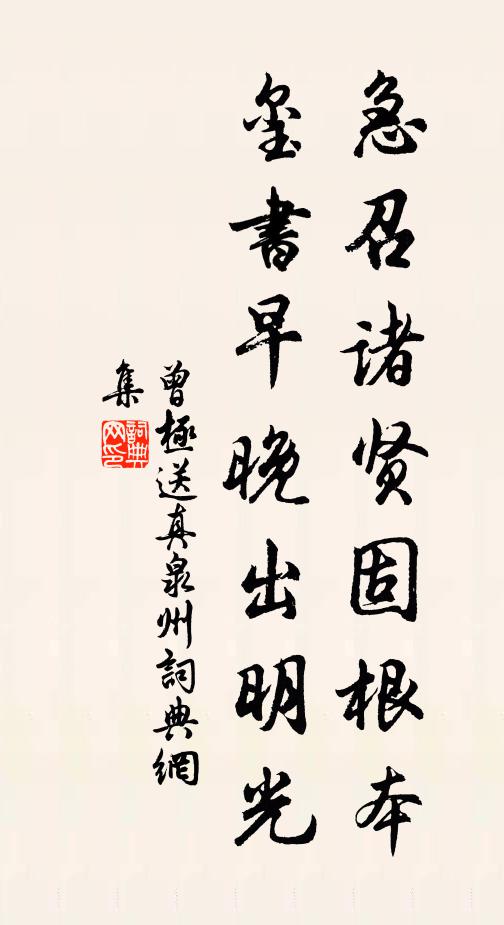 急召诸贤固根本
玺书早晚出明光
曾極送真泉州詞典網
集
詞典
网印